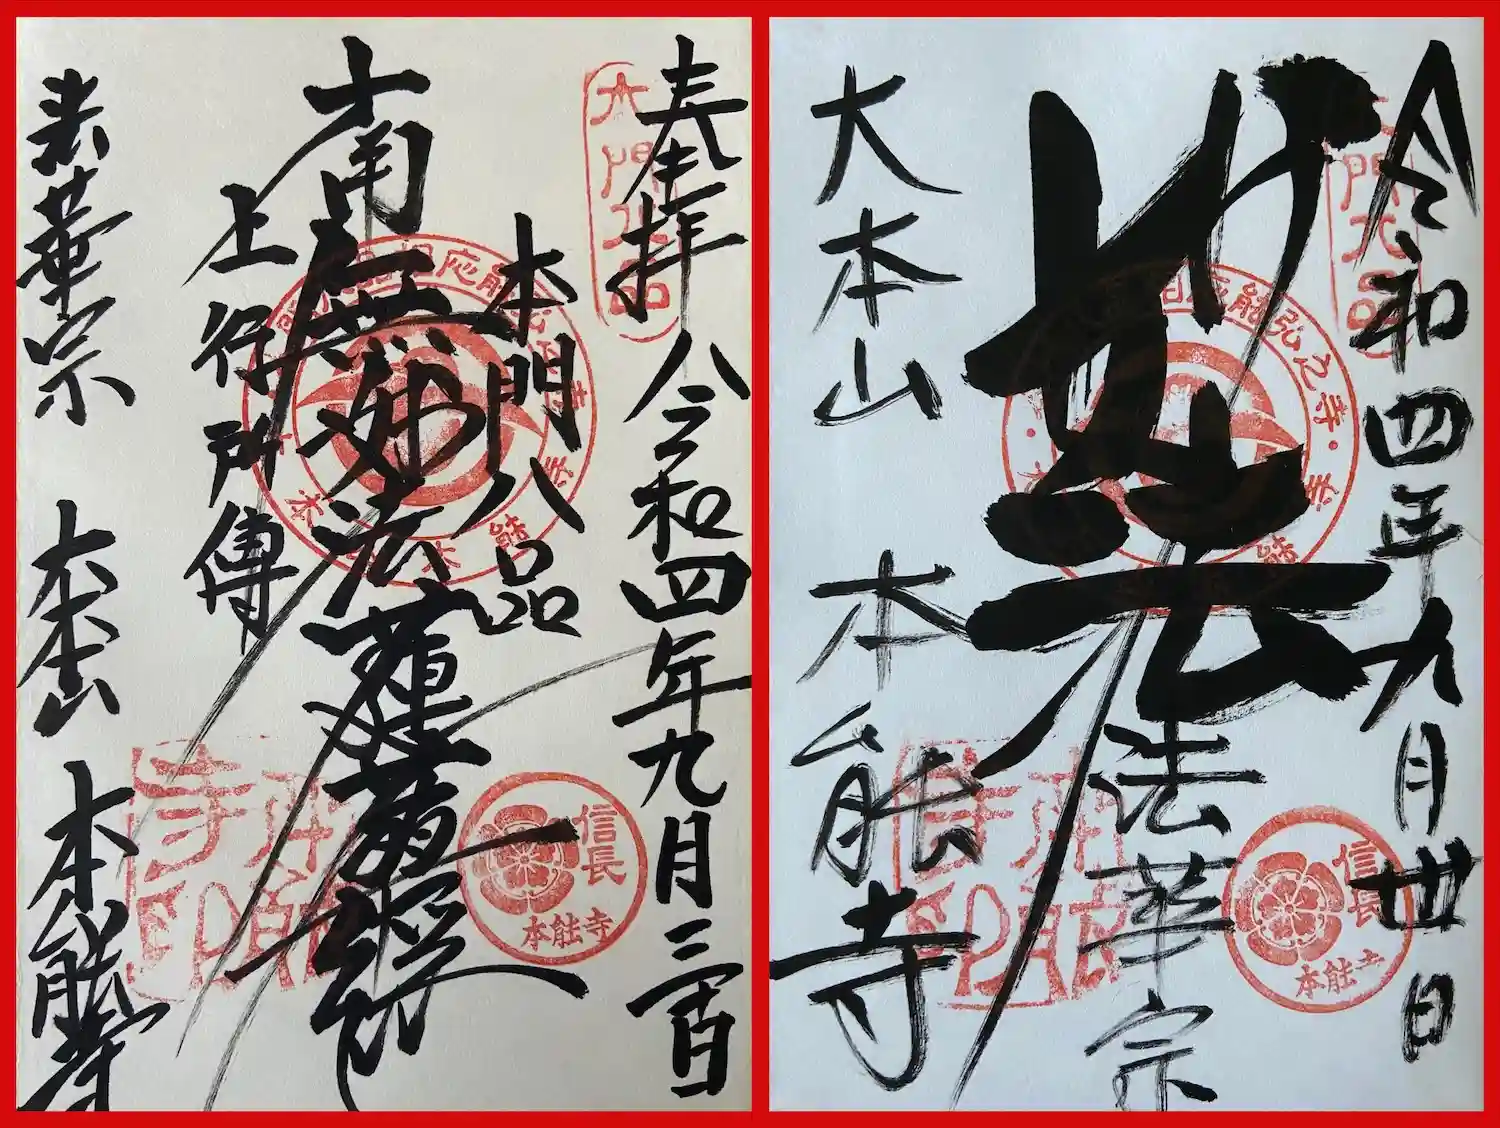 奉拝 令和四年九月三十日
本門八品
南無妙法蓮華経
上行所傳
法華宗 大本山 本能寺
本門八品
信長
本能寺
令和四年九月卅日
妙法
法華宗
大本山 本能寺
信長
本能寺